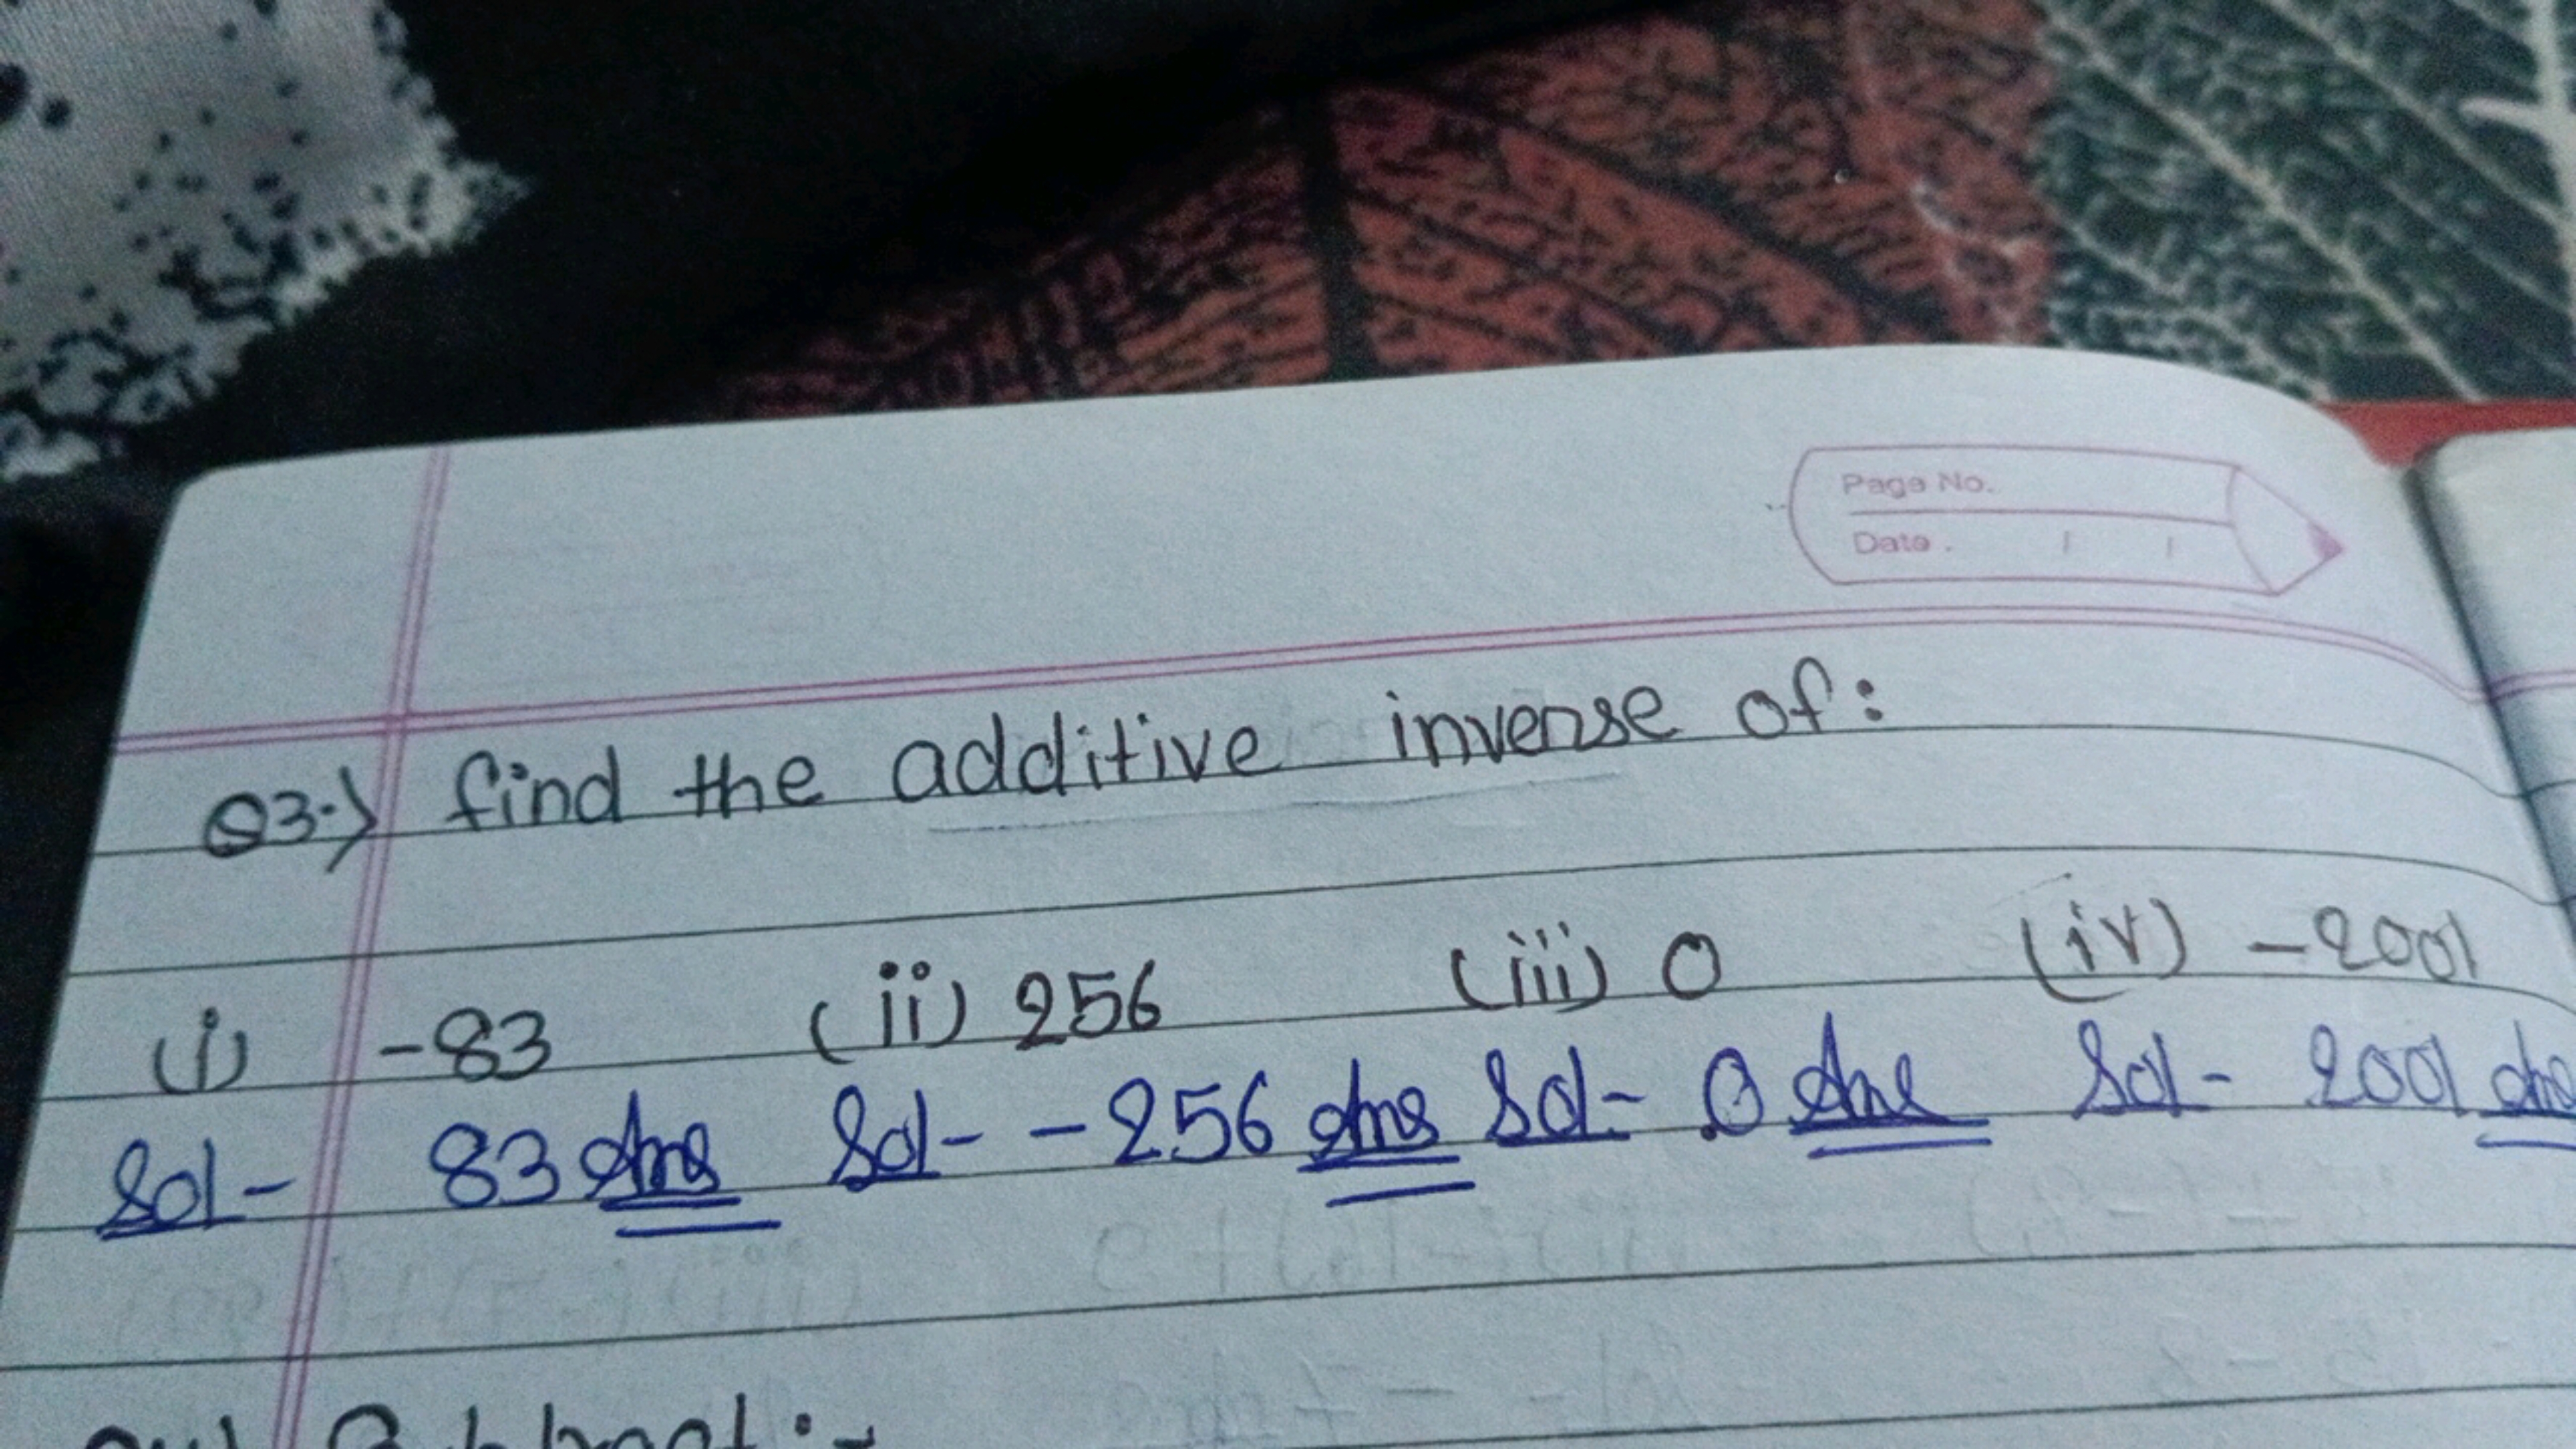 Page No.
Date.
Q3.) find the additive inverse of:
(i) -83 (ii) 256 (iii) 0 (iv) -2001
Sol- 83 Ans Sol- -256 Ans Sol- 0 Ans Sol- 2001 Ans